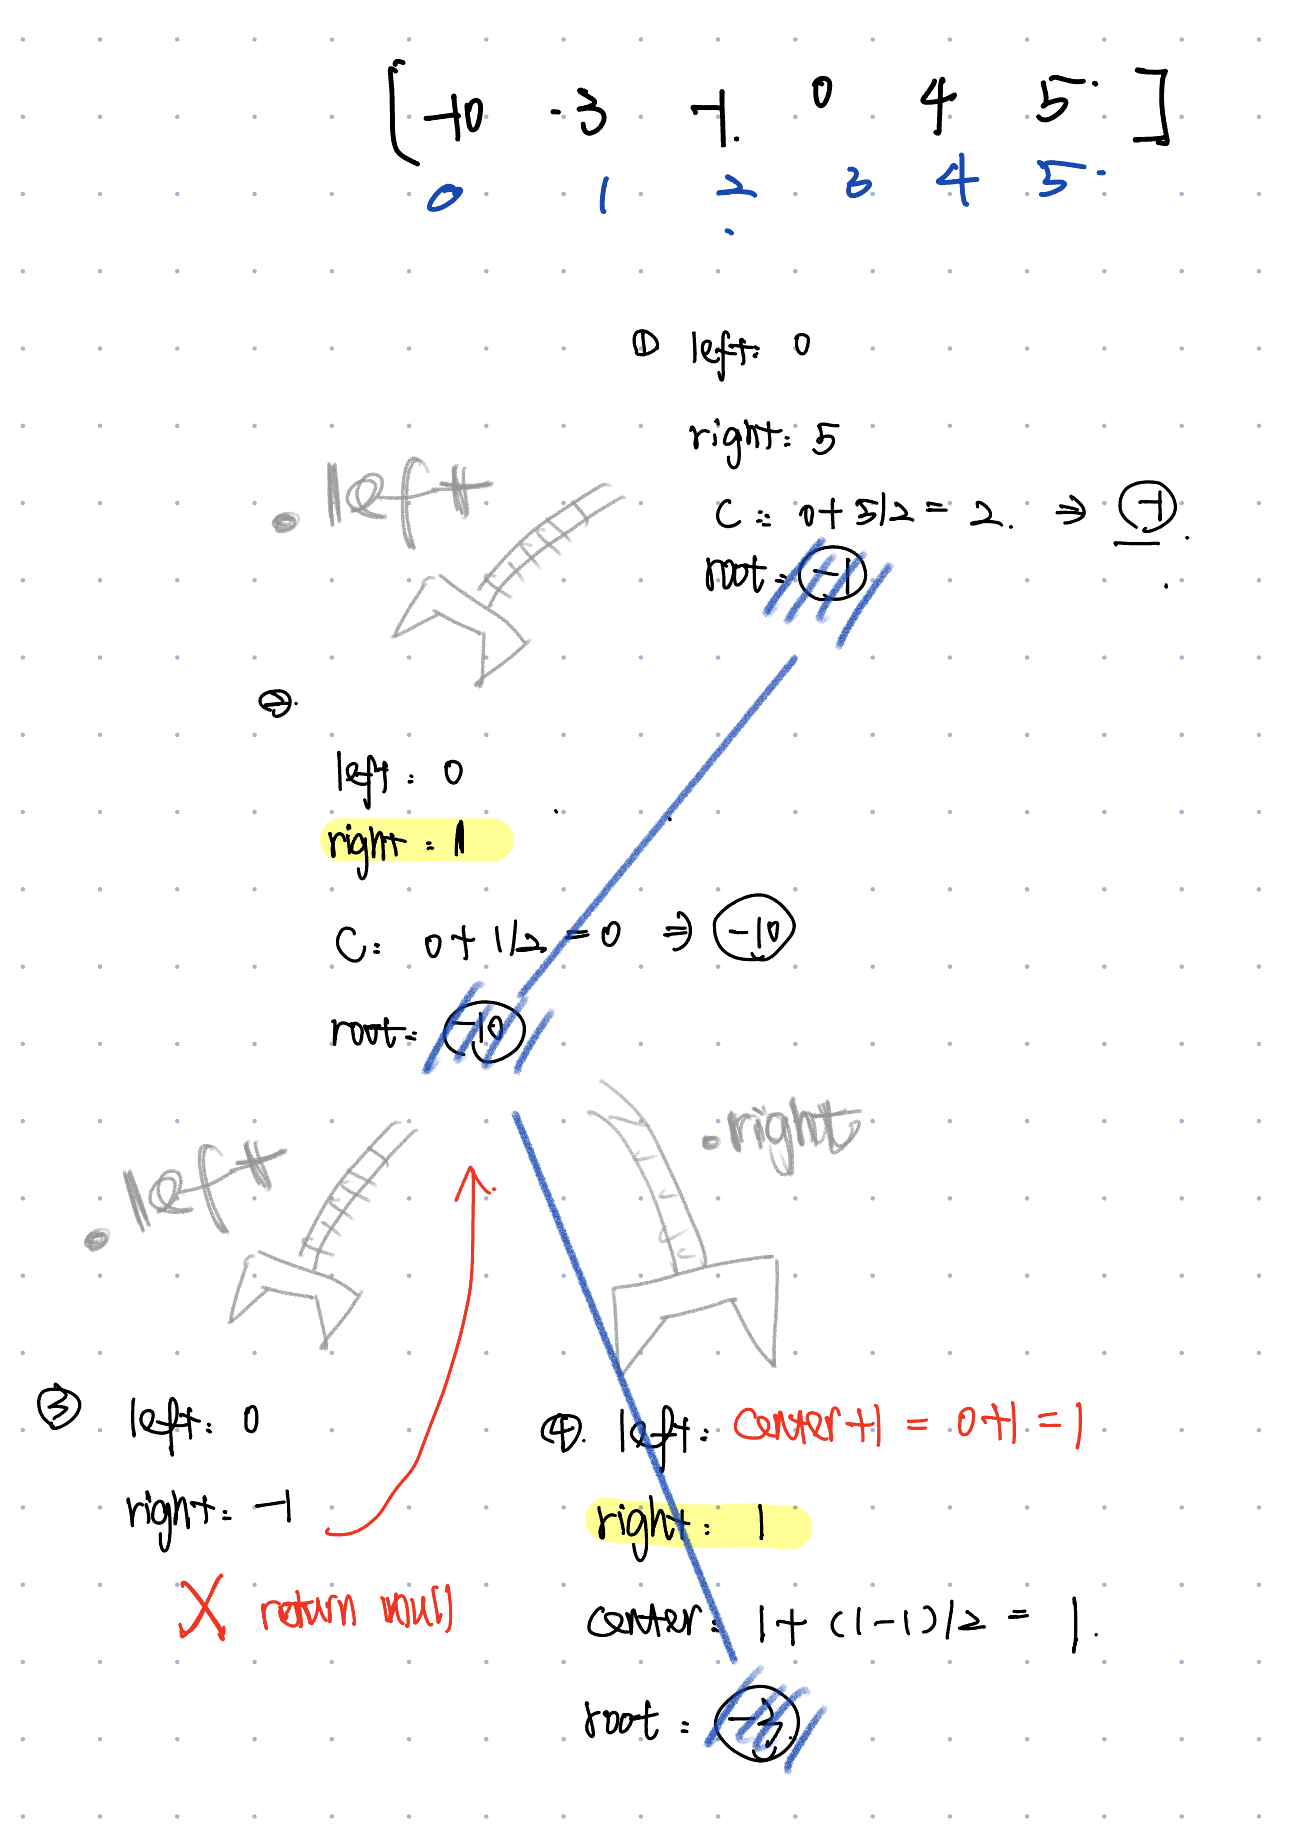 [ -10 -3 -1. 0 4 5 ]
0 1 2 3 4 5
① left: 0
right: 5
C: 0+5/2 = 2. ⇒ -1
root: -1
.left
②
left: 0
right: 1
C: 0+1/2 = 0 ⇒ -10
root: -10
.left
.right
③ left: 0
right: -1
X return null
④. left: center+1 = 0+1 = 1
right: 1
center: 1+(1-1)/2 = 1.
root: -3